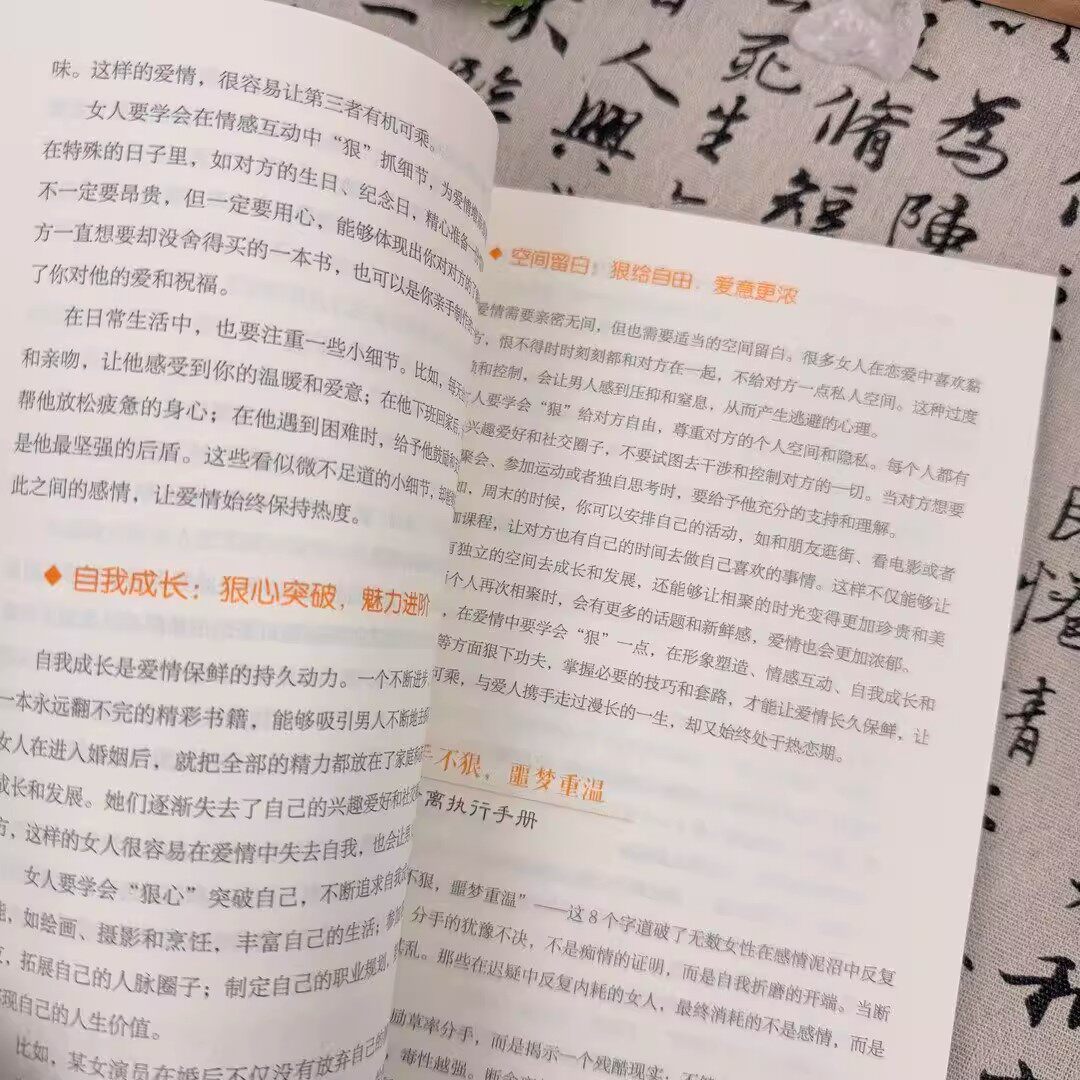 味。这样的爱情，很容易让第三者有机可乘。
女人要学会在情感互动中“狠”抓细节，为爱情增
在特殊的日子里，如对方的生日、纪念日，精心准备一
不一定要昂贵，但一定要用心，能够体现出你对对方的
方一直想要却没舍得买的一本书，也可以是你亲手制作
了你对他的爱和祝福。
在日常生活中，也要注重一些小细节。比如，每天
和亲吻，让他感受到你的温暖和爱意；在他下班回家后，
帮他放松疲惫的身心；在他遇到困难时，给予他鼓励和
是他最坚强的后盾。这些看似微不足道的小细节，却能
此之间的感情，让爱情始终保持热度。
◆ 自我成长：狠心突破，魅力进阶
自我成长是爱情保鲜的持久动力。一个不断进步
一本永远翻不完的精彩书籍，能够吸引男人不断地去
女人在进入婚姻后，就把全部的精力都放在了家庭和
成长和发展。她们逐渐失去了自己的兴趣爱好和社交
方，这样的女人很容易在爱情中失去自我，也会让
女人要学会“狠心”突破自己，不断追求自我
能，如绘画、摄影和烹饪，丰富自己的生活；参加
，拓展自己的人脉圈子；制定自己的职业规划，
现自己的人生价值。
比如，某女演员在婚后不仅没有放弃自己的
◆ 空间留白：狠给自由，爱意更浓
爱情需要亲密无间，但也需要适当的空间留白。很多女人在恋爱中喜欢黏
方，恨不得时时刻刻都和对方在一起，不给对方一点私人空间。这种过度
和控制，会让男人感到压抑和窒息，从而产生逃避的心理。
人要学会“狠”给对方自由，尊重对方的个人空间和隐私。每个人都有
兴趣爱好和社交圈子，不要试图去干涉和控制对方的一切。当对方想要
聚会、参加运动或者独自思考时，要给予他充分的支持和理解。
，周末的时候，你可以安排自己的活动，如和朋友逛街、看电影或者
加课程，让对方也有自己的时间去做自己喜欢的事情。这样不仅能够让
有独立的空间去成长和发展，还能够让相聚的时光变得更加珍贵和美
个人再次相聚时，会有更多的话题和新鲜感，爱情也会更加浓郁、
，在爱情中要学会“狠”一点，在形象塑造、情感互动、自我成长和
等方面狠下功夫，掌握必要的技巧和套路，才能让爱情长久保鲜，让
可乘，与爱人携手走过漫长的一生，却又始终处于热恋期。
不狠，噩梦重温
离执行手册
不狠，噩梦重温”——这8个字道破了无数女性在感情泥沼中反复
分手的犹豫不决，不是痴情的证明，而是自我折磨的开端。当断
乱。那些在迟疑中反复内耗的女人，最终消耗的不是感情，而是
励草率分手，而是揭示一个残酷现实，不
毒性越强。